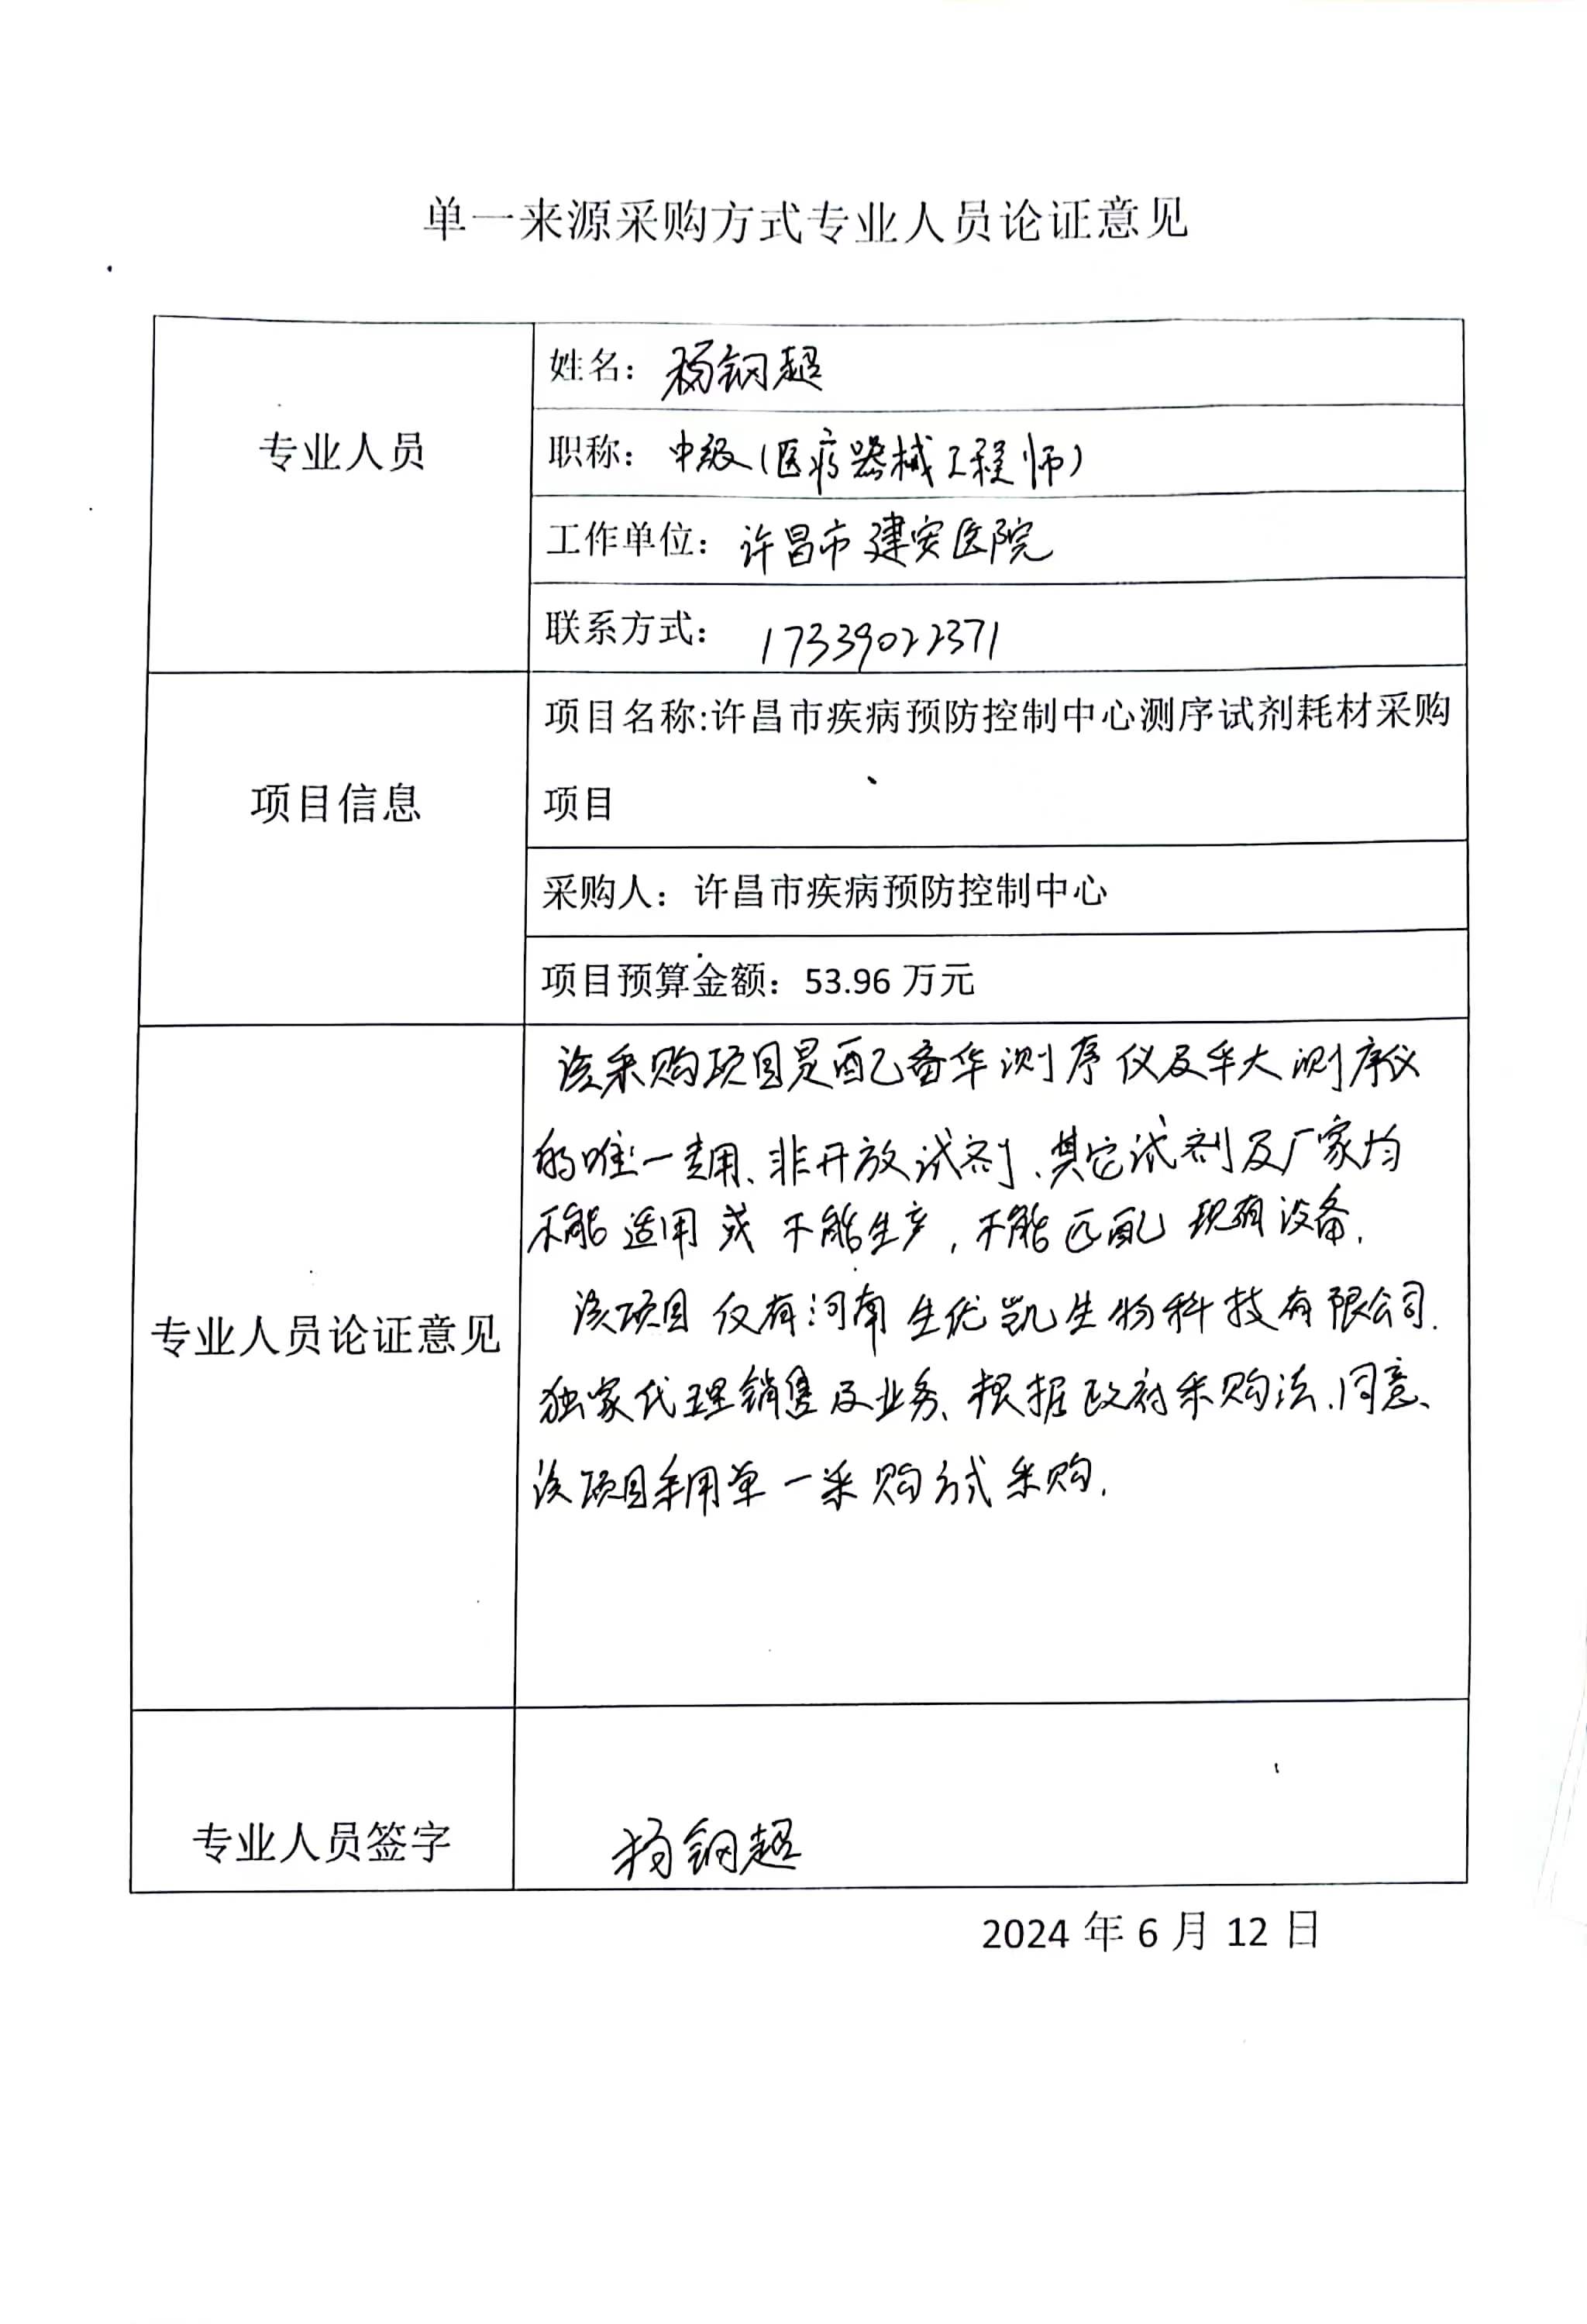 单一来源采购方式专业人员论证意见
专业人员
姓名：杨钢超
职称：中级(医疗器械工程师)
工作单位：许昌市建安医院
联系方式：17339022371
项目信息
项目名称:许昌市疾病预防控制中心测序试剂耗材采购
项目
采购人：许昌市疾病预防控制中心
项目预算金额：53.96万元
专业人员论证意见
该采购项目是配已备华测序仪及华大测序仪
的唯一专用、非开放试剂、其它试剂及厂家均
不能适用或不能生产，不能匹配现有设备.
该项目仅有河南生优凯生物科技有限公司.
独家代理销售及业务、根据政府采购法.同意、
该项目采用单一采购方式采购.
专业人员签字
杨钢超
2024年6月12日